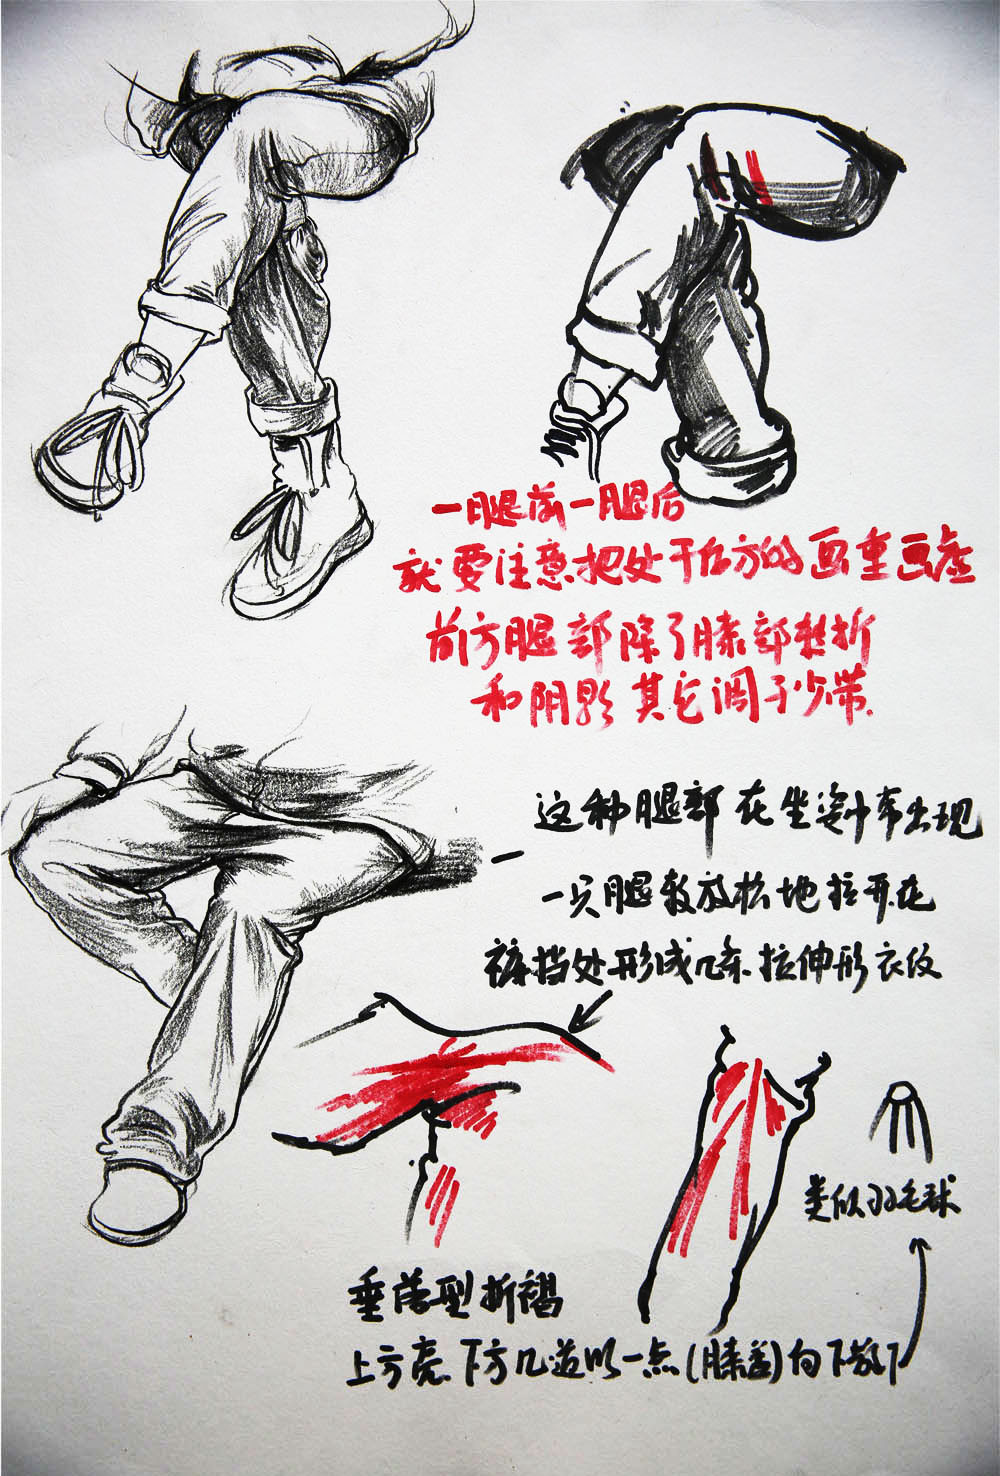 一腿前一腿后
就要注意把处于后方的画重画虚
前方腿部除了膝部转折
和阴影其它调子少带.
这种腿部在坐姿中常出现
一只腿较放松地拉开在
裤挡处形成几条拉伸形衣纹
类似羽毛球
垂落型折褶
上方亮.下方几道以一点(膝盖)向下散下